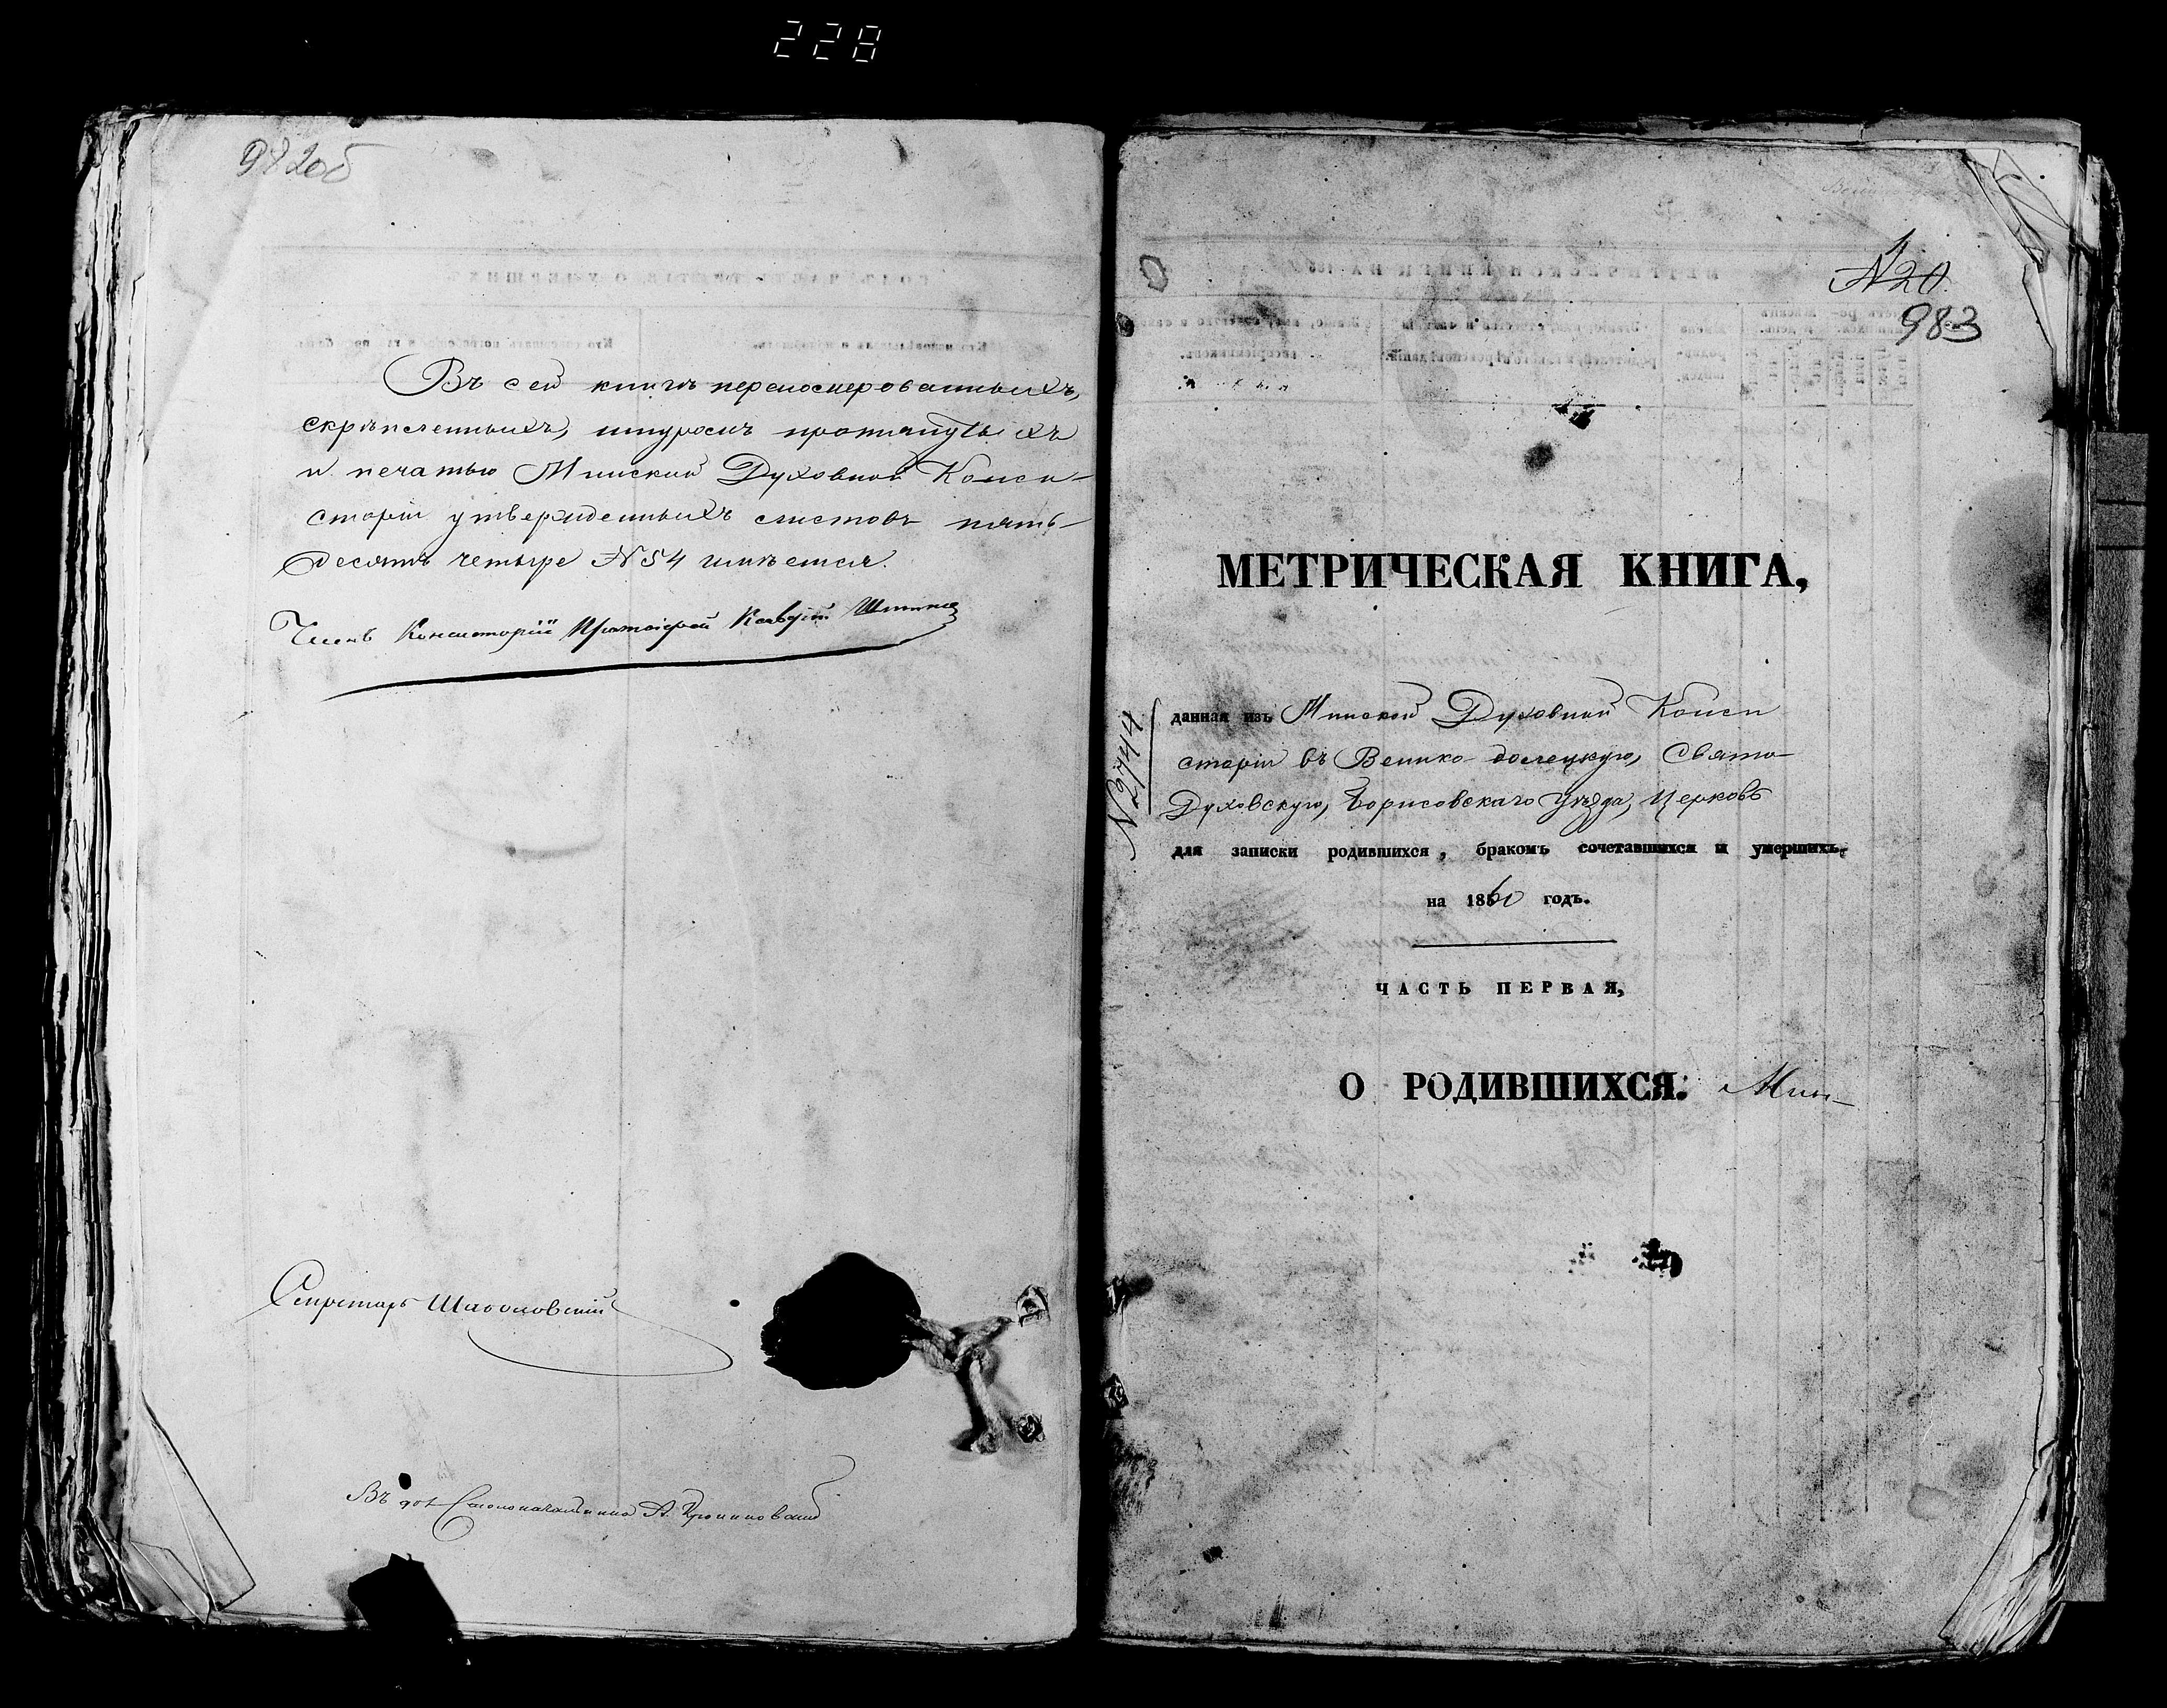 228
982об
Въ сей книгѣ перенумерованныхъ,
скрѣпленныхъ, шнуромъ протянутыхъ
и печатью Минской Духовной Конси-
сторіи утвержденныхъ листовъ пять-
десятъ четыре №54 имѣется.
Членъ Консисторіи Протоіерей
Секретарь
Въ дол Столоначальника А.
№20.
983
МЕТРИЧЕСКАЯ КНИГА,
№9744
данная изъ Минской Духовной Конси
сторіи въ Велико-долецкую, Свято-
Духовскую, Борисовскаго уѣзда, Церковь
для записки родившихся, бракомъ сочетавшихся и умершихъ,
на 1860 годъ.
ЧАСТЬ ПЕРВАЯ,
О РОДИВШИХСЯ. Мин-